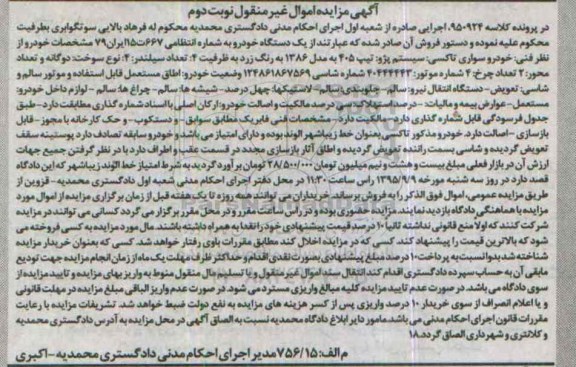 آگهی مزایده اموال غیر منقول نوبت دوم
در پرونده کلاسه ۹۵۰۹۲۴ اجرایی صادره از شعبه اول اجرای احکام مدنی دادگستری محمدیه محکوم له فرهاد بالایی سوتگوابری بطرفیت
محکوم علیه نموده و دستور فروش آن صادر شده که عبارتند از یک دستگاه خودرو به شماره انتظامی ۶۶۷ت۱۵ایران۷۹ مشخصات خودرو از
نظر فنی: خودرو سواری تاکسی: سیستم پژو: تیپ ۴۰۵ به مدل ۱۳۸۶ به رنگ زرد به ظرفیت ۴: تعداد سیلندر: ۴: نوع سوخت: دوگانه و تعداد
محور: ۲ تعداد چرخ: ۴ شماره موتور: ۴۰۴۴۴۴۴۳ شماره شاسی ۱۲۴۸۶۱۸۶۷۵۶۹ وضعیت خودرو: اطاق مستعمل قابل استفاده و موتور سالم و
شاسی: تعویض - دستگاه انتقال نیرو: سالم- جلوبندی: سالم- لاستیکها: چهل درصد- شیشه ها: سالم- چراغ ها: سالم - لوازم داخل خودرو:
مستعمل- عوارض بیمه و مالیات: - درصد استهلاک: - درصد مالکیت و اصالت خودرو: ارکان اصلی با اسناد شماره گذاری مطابقت دارد- طبق
جدول فرسودگی قابل شماره گذاری دارد- مالکیت دارد- مشخصات فنی فابریک مطابق سوابق - دستکوب - و حک کارخانه با مجوز - قابل
بازسازی - اصالت دارد. خودرو مذکور تاکسی بعنوان خط زیباشهر الوند بوده و دارای امتیاز می باشد و خودرو سابقه تصادف دارد پوسته سقف
تعویض گردیده و شاسی بسمت راننده تعویض گردیده و اطاق آثار بازسازی مجدد در قسمت عقب و اطراف دارد با در نظر گرفتن جمیع جهات
ارزش آن در بازار فعلی مبلغ بیست و هشت و نیم میلیون تومان ۲۸/۵۰۰/۰۰۰ تومان برآورد گردید به شرط امتیاز خط الوند زیباشهر که این دادگاه
قصد دارد در روز سه شنبه مورخه ۱۳۹۵/۹/۹ راس ساعت ۱۱:۳۰ در محل دفتر اجرای احکام مدنی شعبه اول دادگستری محمدیه - قزوین از
طریق مزایده عمومی، اموال فوق الذکر را به فروش برساند. خریداران می توانند همه روز تا یک هفته قبل از زمان برگزاری مزایده از اموال مورد
مزایده با هماهنگی دادگاه بازدید نمایند. مزایده حضوری بوده و در راس ساعت مقرر و در محل مقرر برگزار می گردد کسانی می توانند در مزایده
شرکت کنند که اولا منع قانونی نداشته ثانیا ۱۰ درصد قیمت پیشنهادی خود را نقدا به همراه داشته باشند. مال مورد مزایده به کسی فروخته می
شود که بالاترین قیمت را پیشنهاد کند. کسی که در مزایده اخلال کند مطابق مقررات باوی رفتار خواهد شد. کسی که بعنوان خریدار مزایده
شناخته شد بدوا نسبت به پرداخت ۱۰ درصد مبلغ پیشنهادی بصورت نقدی اقدام و حداکثر ظرف مهلت یک ماه از زمان انجام مزایده جهت تودیع
مابقی آن به حساب سپرده دادگستری اقدام کند انتقال سند اموال غیر منقول و یا تسلیم مال منقول منوط به واریز بهای مزایده و تایید مزایده از
سوی دادگاه می باشد. در صورت عدم تایید مزایده کلیه مبالغ واریزی مسترد می شود. در صورت عدم واریز الباقی مبلغ مزایده در مهلت قانونی
و یا اعلام انصراف از سوی خریدار ۱۰ درصد واریزی پس از کسر هزینه های مزایده به نفع دولت ضبط خواهد شد. تشریفات مزایده با رعایت
مقررات قانون اجرای احکام مدنی می باشد. مامور دایر ابلاغ دادگاه محمدیه نسبت به الصاق آگهی در محل مزایده به آدرس دادگستری محمدیه
و کلانتری و شهرداری الصاق گردد.۱۸
م الف: ۷۵۶/۱۵ مدیر اجرای احکام مدنی دادگستری محمدیه - اکبری